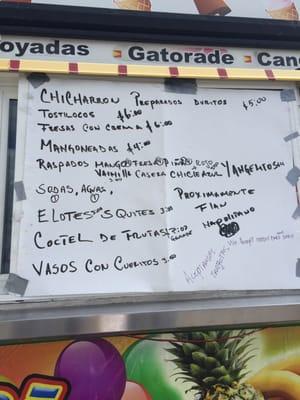 oyadas Gatorade Cang
CHICHARRON PREPARADOS DURITOS $5.00
TOSTILOCOS $6.00
FRESAS CON CREMA $6.00
MANGONEADAS $4.00
RASPADOS MANGO FRESA PIÑA ROJO
VAINILLA CASERA CHICLE AZUL YANGELITOS
3.00
SODAS, AGUAS,
PROXIMAMENTE
FLAN
NAPOLITANO
ELOTES ESQUITES 3.00
COCTEL DE FRUTAS 7.00
GRANDE
VASOS CON CUERITOS 3.00
Aceptamos
tarjetas